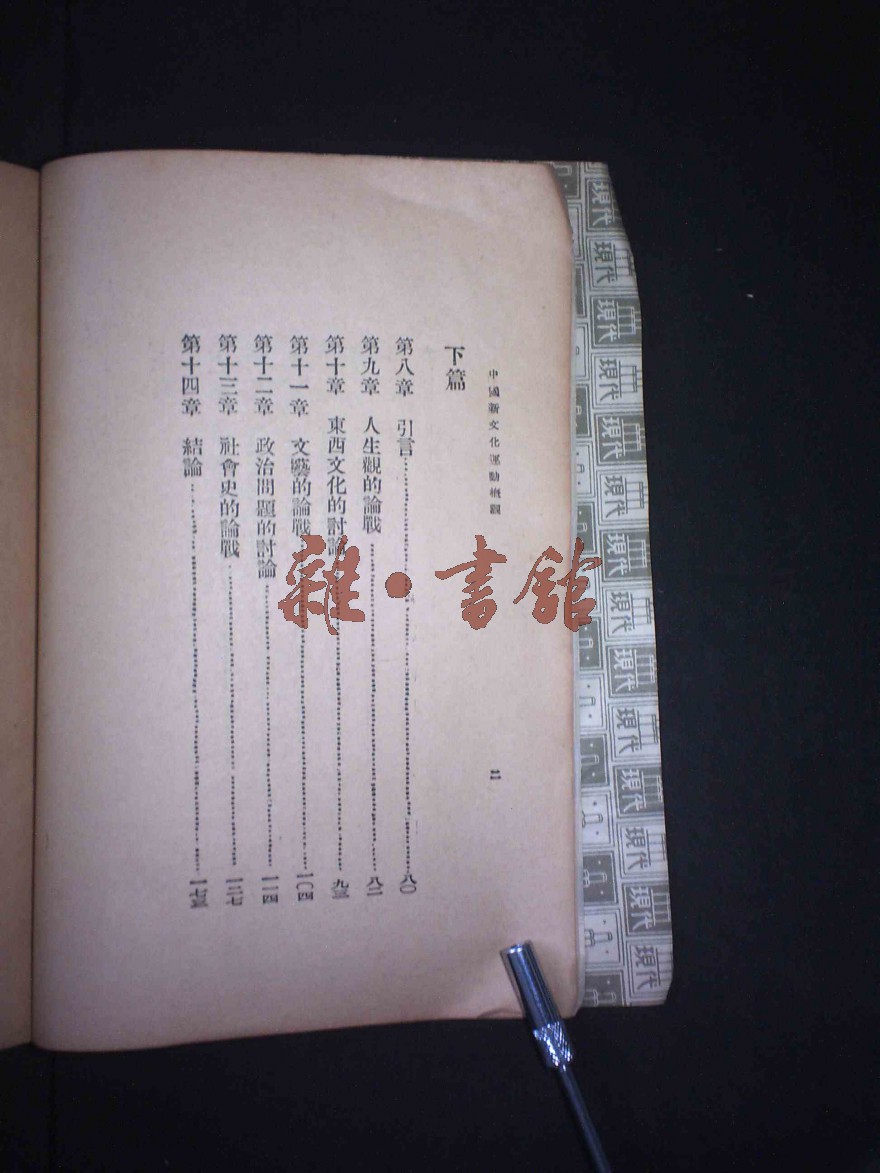 中國新文化運動概觀
二
下篇
第八章 引言 八〇
第九章 人生觀的論戰 八二
第十章 東西文化的討論
第十一章 文藝的論戰 一〇四
第十二章 政治問題的討論 一一四
第十三章 社會史的論戰 一三七
第十四章 結論
雜·書館
現代
現代
現代
現代
現代
現代
現代
現代
現代
現代
現代
現代
現代
現代